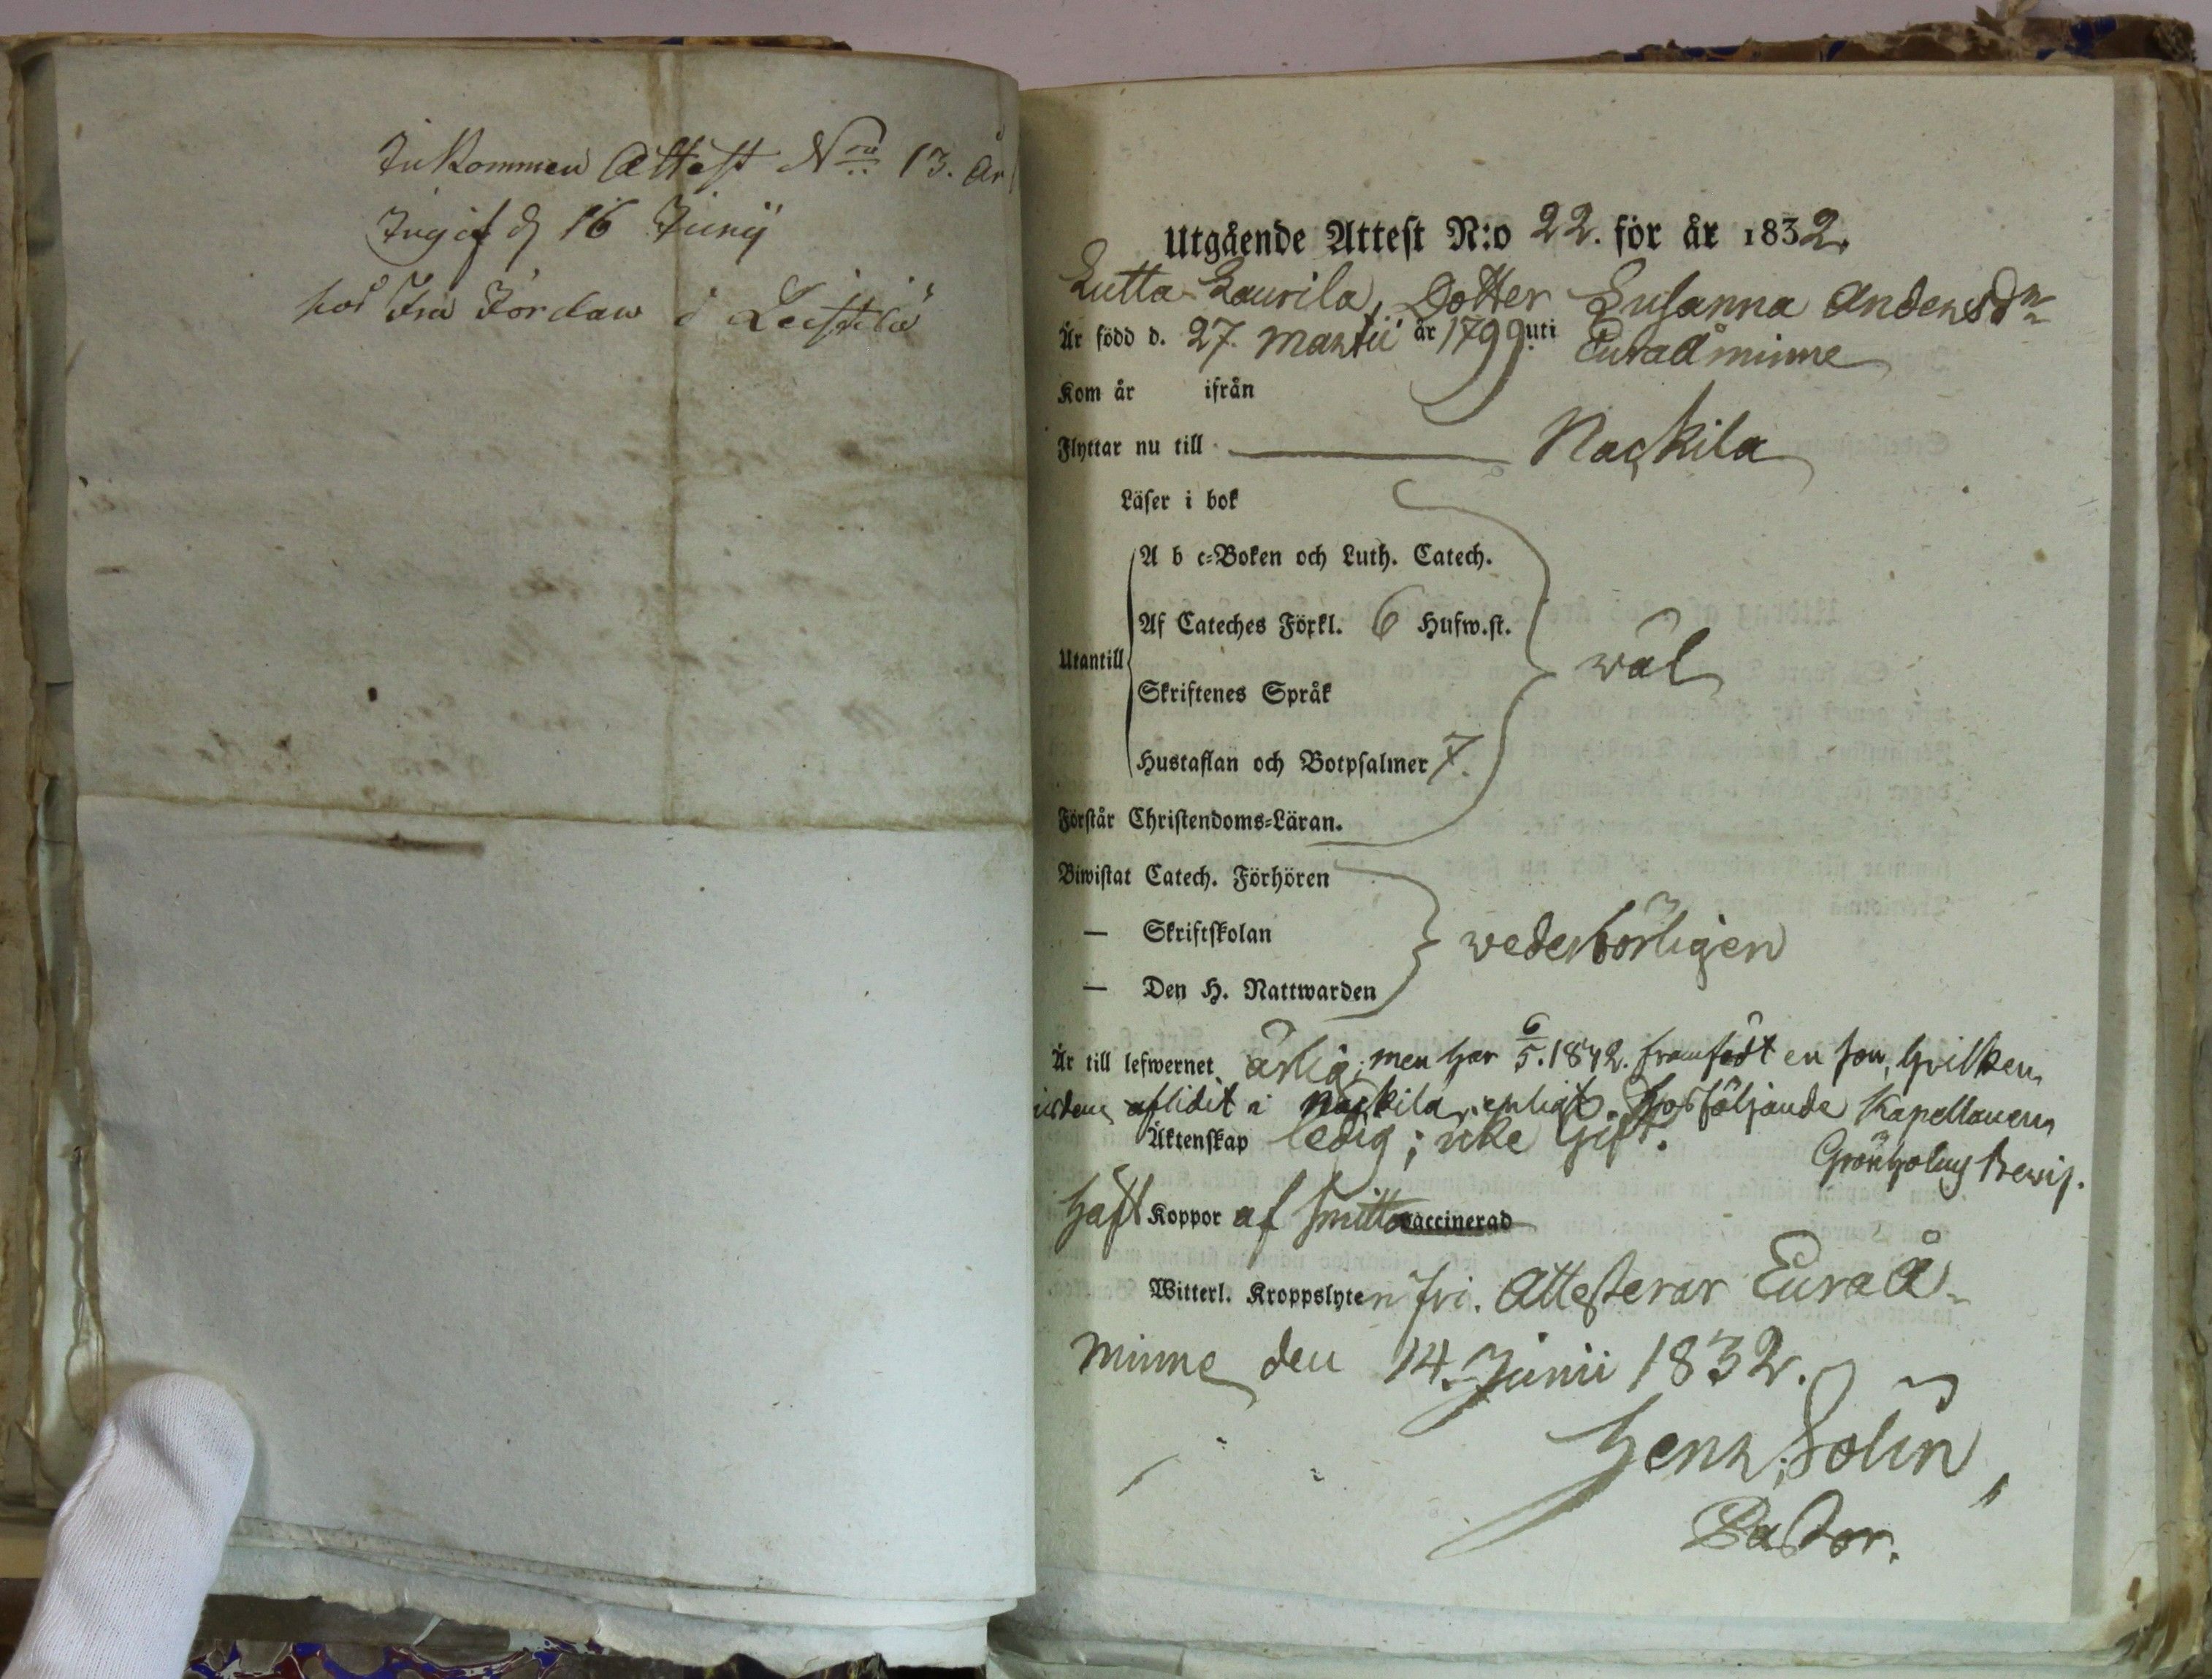 Inkommen Attest N:ro 13. År
Ingif d 16 Junij
hos Jordan i Leistilä
Utgående Attest N:o 22. för år 1832.
Lutta Laurila, Dotter Susanna Andersd:r
Är född d. 27. Martii år 1799 uti Euraåminne
Kom år ifrån
Flyttar nu till Nackila
Läser i bok
A b c-Boken och Luth. Catech.
Af Cateches Förkl. 6 Hufw.st.
Utantill wäl
Skriftenes Språk
Hustaflan och Botpsalmer 7.
Förstår Christendoms-Läran.
Biwistat Catech. Förhören
— Skriftskolan wederbörligen
— Den H. Nattwarden
Är till lefwernet ärlig; men har 6/5. framfödt en son, hvilken
aflidit i Nackila, enligt följande Kapellanens
Äktenskap ledig; icke Gift. Grönholms bewis.
haft Koppor af smitta vaccinerad
Witterl. Kroppslyten fri. Attesterar Euraå-
minne den 14. Junii 1832.
Henr. Solin,
Pastor.